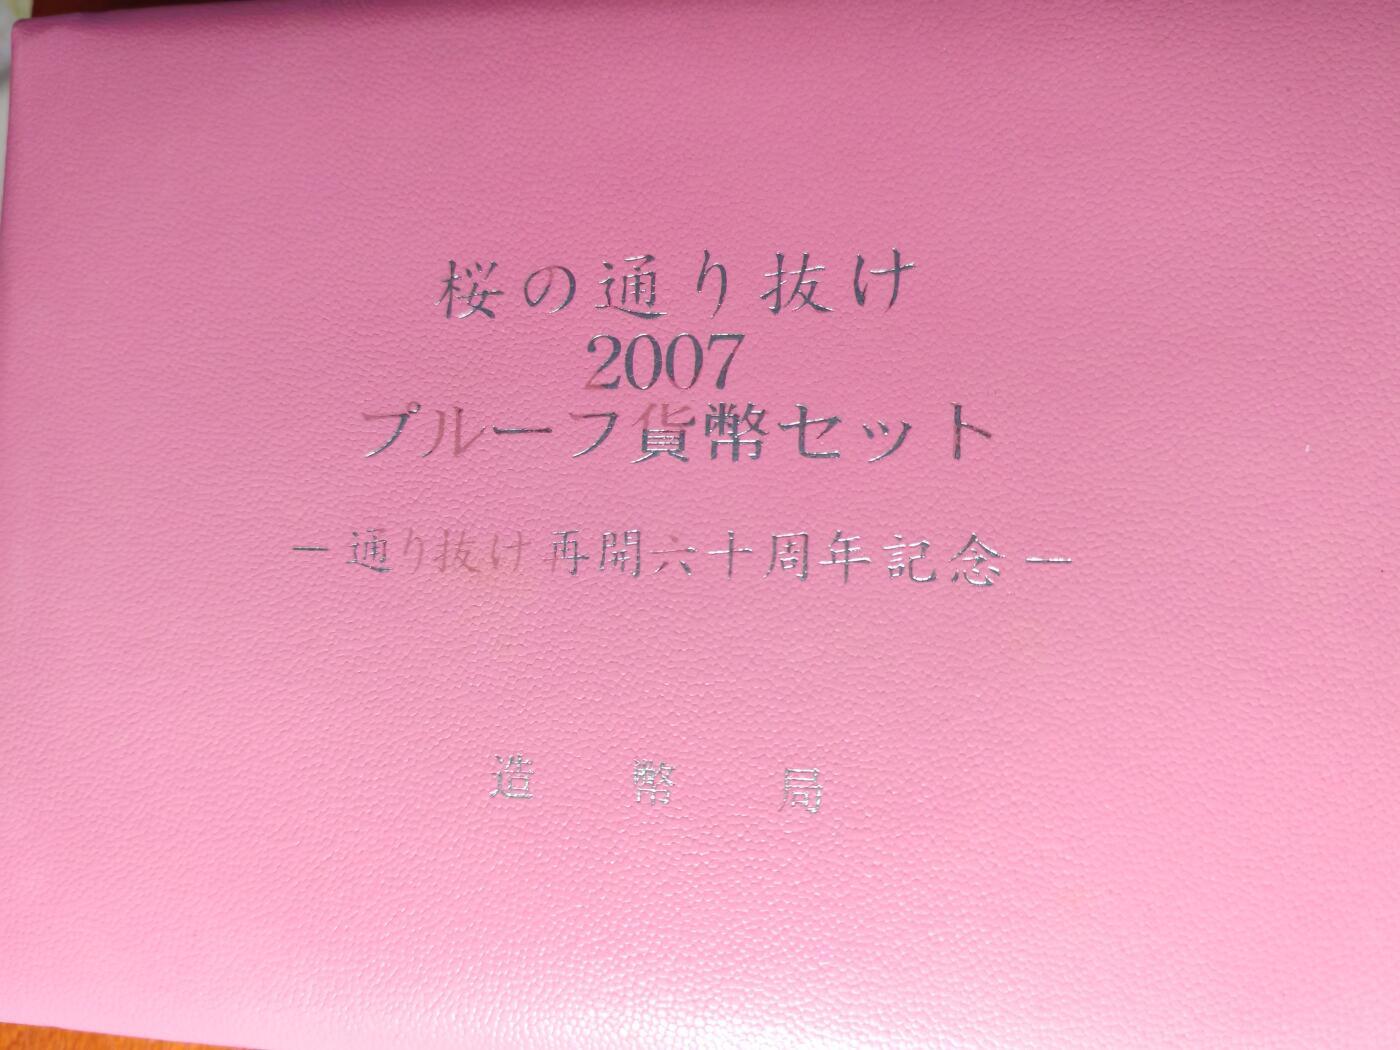 桜の通り抜け
2007
プルーフ貨幣セット
―通り抜け再開六十周年記念―
造幣局